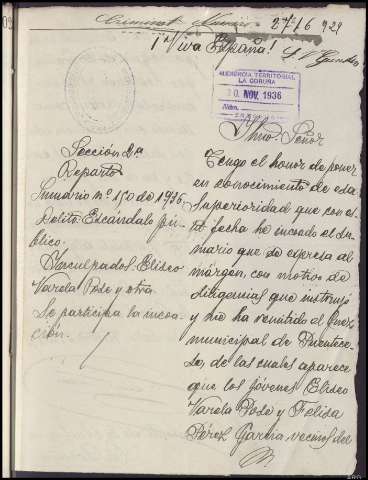 Criminal
2ª 76 929
¡Viva España!
AUDIENCIA TERRITORIAL
LA CORUÑA
30 NOV. 1936
Núm.
Ilmo. Señor
Sección 2ª
Reparto
Sumario nº 150 de 1936
Delito: Escándalo pú-
blico.
Inculpados: Eliseo
Varela Pose y otra.
Se participa la incoa-
ción.
Tengo el honor de poner
en conocimiento de esa
Superioridad que con es-
ta fecha he incoado el su-
mario que se expresa al
márgen, con motivo de
diligencias que instruyó
y me ha remitido el Juez
municipal de Puentece-
so, de las cuales aparece
que los jóvenes Eliseo
Varela Pose y Felisa
Pérez García vecinos del